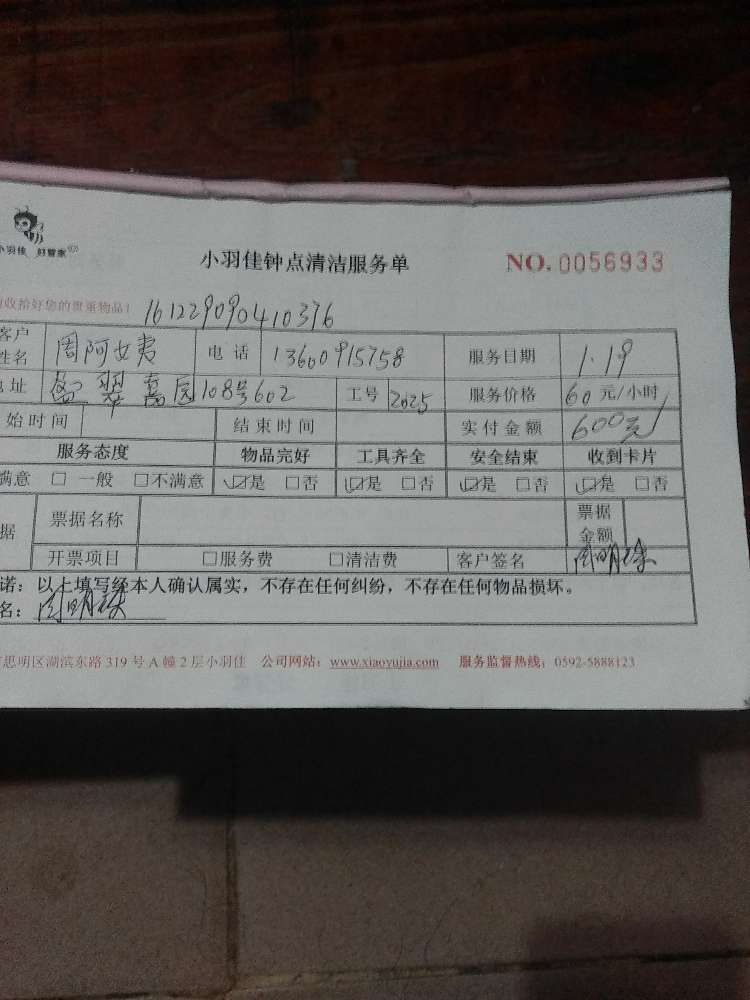 小羽佳 好管家
小羽佳钟点清洁服务单 NO.0056933
收拾好您的贵重物品! 161229090410376
客户姓名 周阿女 电话 13600915758 服务日期 1.19
地址 盈翠嘉园108号602 工号 2025 服务价格 60元/小时
始时间 结束时间 实付金额 600元
服务态度 物品完好 工具齐全 安全结束 收到卡片
满意 □一般 □不满意 ☑是 □否 ☑是 □否 ☑是 □否 ☑是 □否
据 票据名称 票据金额
开票项目 □服务费 □清洁费 客户签名 周明珠
诺:以上填写经本人确认属实,不存在任何纠纷,不存在任何物品损坏。
名:周明珠
思明区湖滨东路319号A幢2层小羽佳 公司网站:www.xiaoyujia.com 服务监督热线:0592-5888123